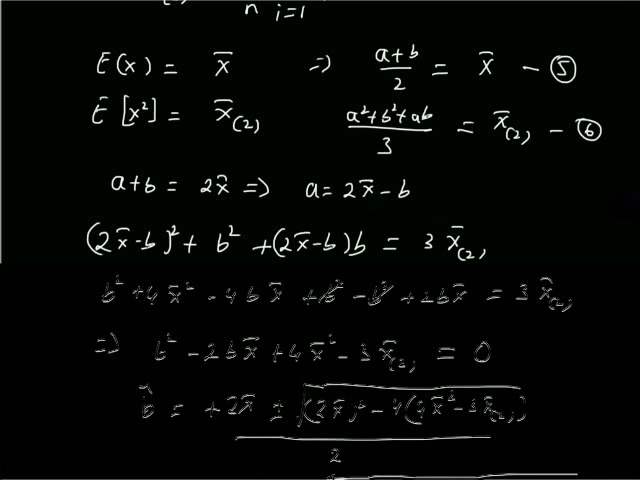 n i=1
E(x) = x̄ ⇒ (a+b)/2 = x̄ – ⑤
E[x²] = x̄₍₂₎ (a²+b²+ab)/3 = x̄₍₂₎ – ⑥
a+b = 2x̄ ⇒ a = 2x̄ – b
(2x̄–b)² + b² + (2x̄–b)b = 3x̄₍₂₎
b² + 4x̄² – 4bx̄ + b² – b² + 2bx̄ = 3x̄₍₂₎
⇒ b² – 2bx̄ + 4x̄² – 3x̄₍₂₎ = 0
b̂ = (+2x̄ ± √((2x̄)² – 4(4x̄² – 3x̄₍₂₎)))/2